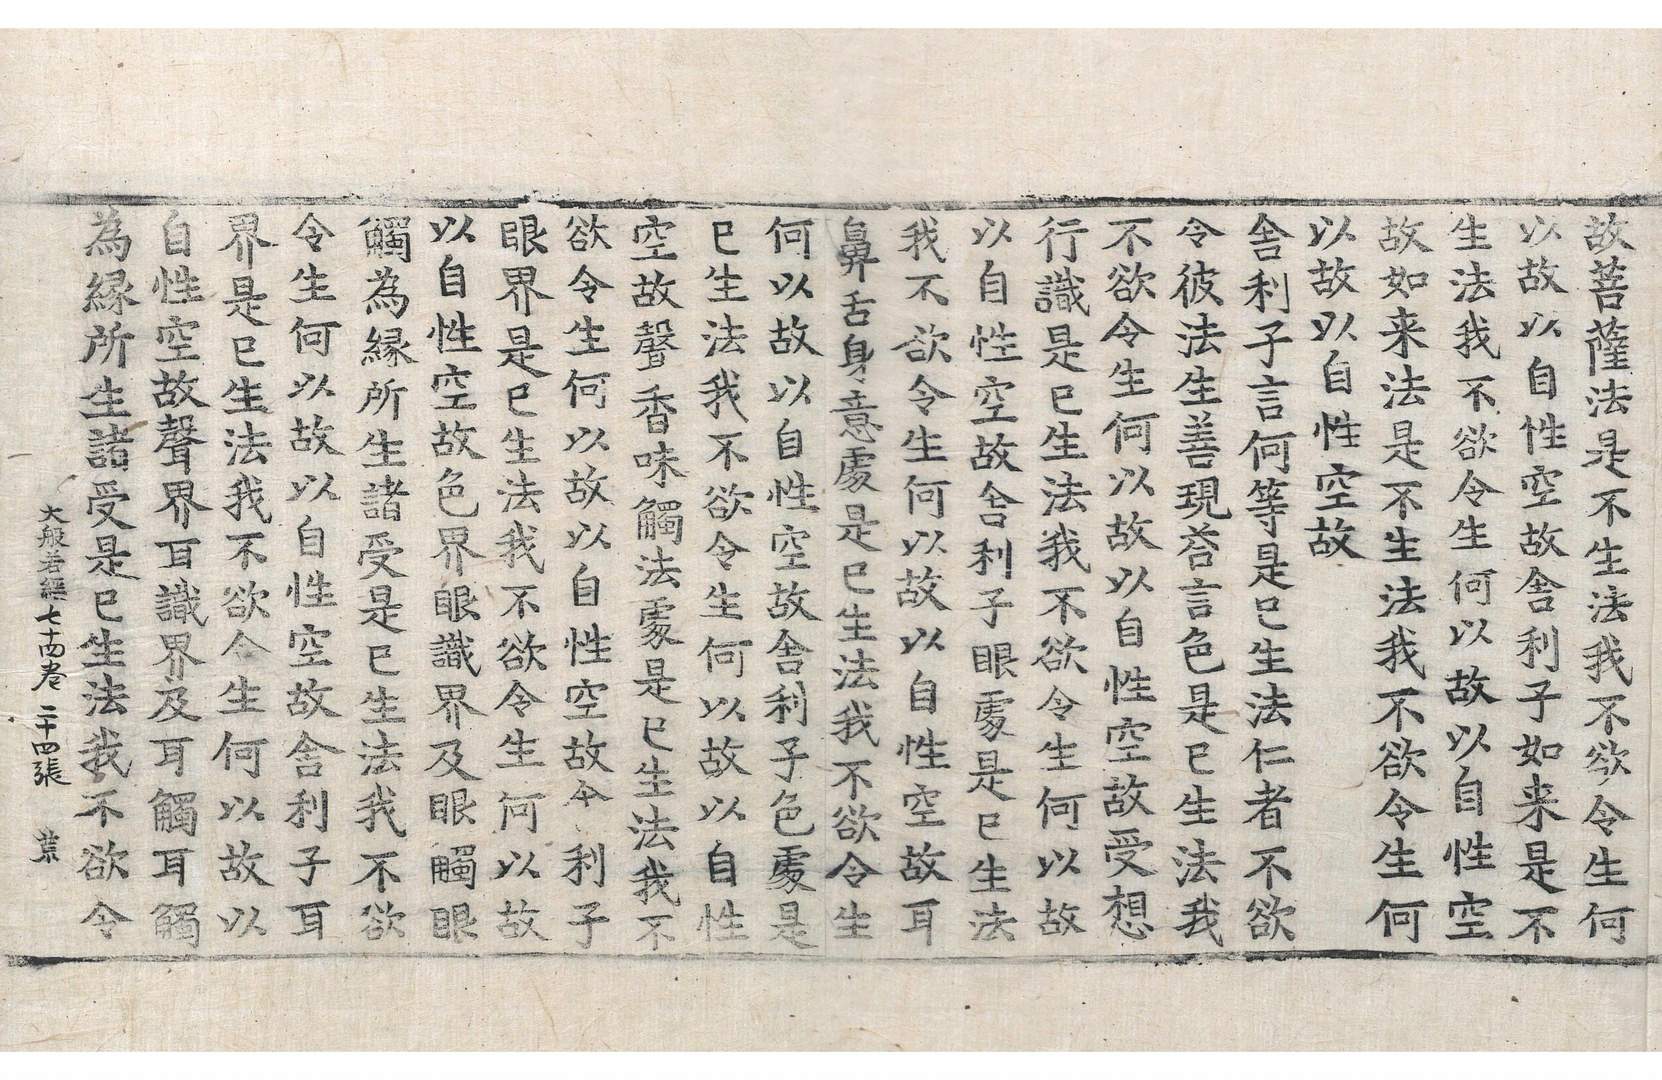 故菩薩法是不生法我不欲令生何
以故以自性空故舍利子如来是不
生法我不欲令生何以故以自性空
故如来法是不生法我不欲令生何
以故以自性空故
舍利子言何等是已生法仁者不欲
令彼法生善現荅言色是已生法我
不欲令生何以故以自性空故受想
行識是已生法我不欲令生何以故
以自性空故舍利子眼處是已生法
我不欲令生何以故以自性空故耳
鼻舌身意處是已生法我不欲令生
何以故以自性空故舍利子色處是
已生法我不欲令生何以故以自性
空故聲香味觸法處是已生法我不
欲令生何以故以自性空故舍利子
眼界是已生法我不欲令生何以故
以自性空故色界眼識界及眼觸眼
觸為縁所生諸受是已生法我不欲
令生何以故以自性空故舍利子耳
界是已生法我不欲令生何以故以
自性空故聲界耳識界及耳觸耳觸
為縁所生諸受是已生法我不欲令
大般若經七十四卷 二十四張 菜